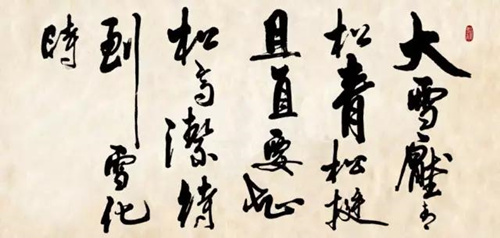 大雪壓青
松青松挺
且直要知
松高潔待
到雪化
時